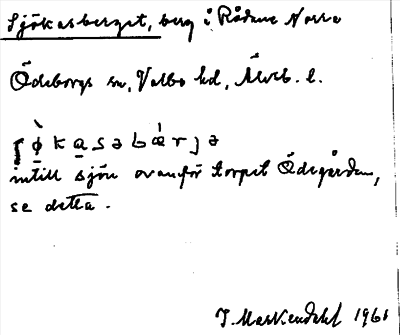 Sjökasberget, berg i Rådane Norra
Ödeborgs sn, Valbo hd, Älvsb. l.
ʃø̀kasəbǽrjə
intill sjön ovanför torpet Ödegården,
se detta.
J. Markendahl 1961